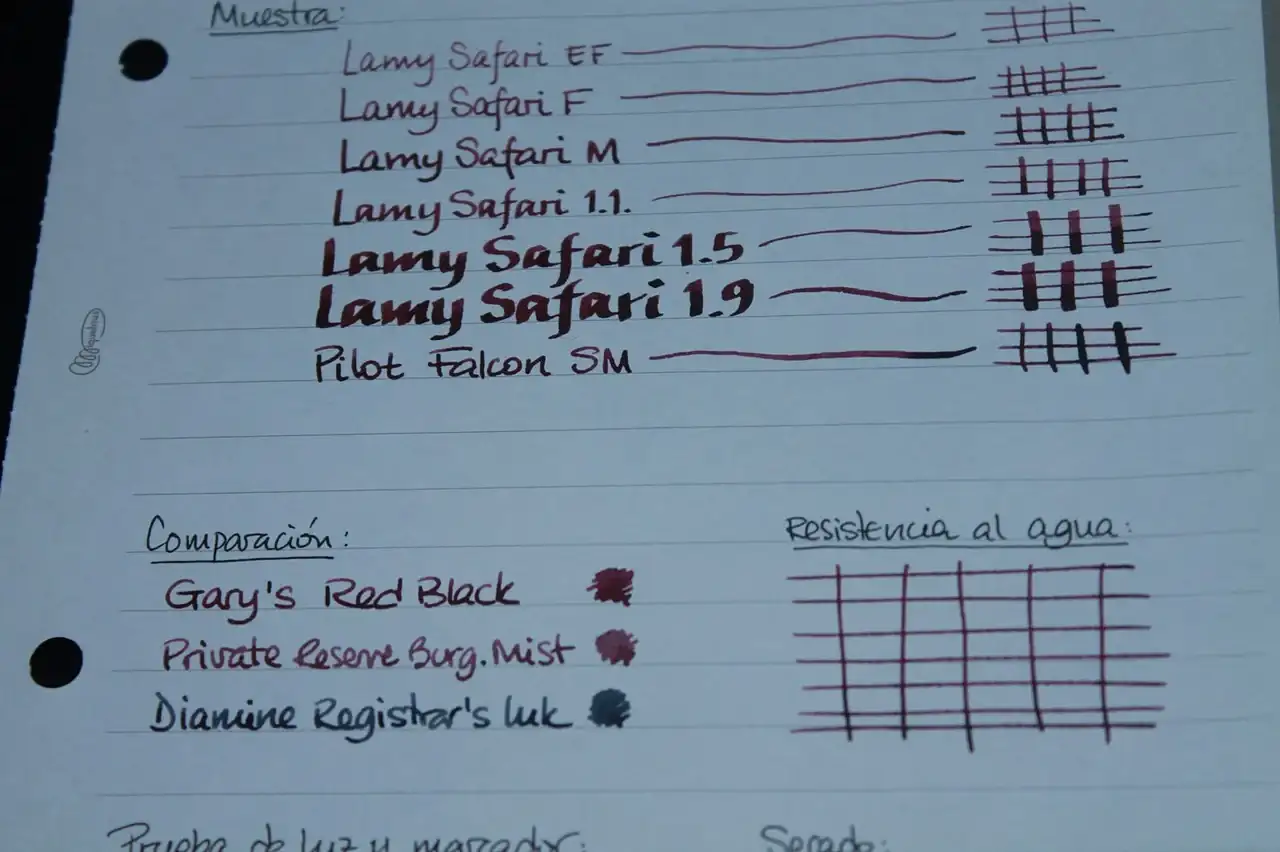 Muestra:
Lamy Safari EF
Lamy Safari F
Lamy Safari M
Lamy Safari 1.1.
Lamy Safari 1.5
Lamy Safari 1.9
Pilot Falcon SM
Comparación:
Gary's Red Black
Private Reserve Burg. Mist
Diamine Registrar's Ink
Resistencia al agua:
Prueba de luz y marcador:
Secado: